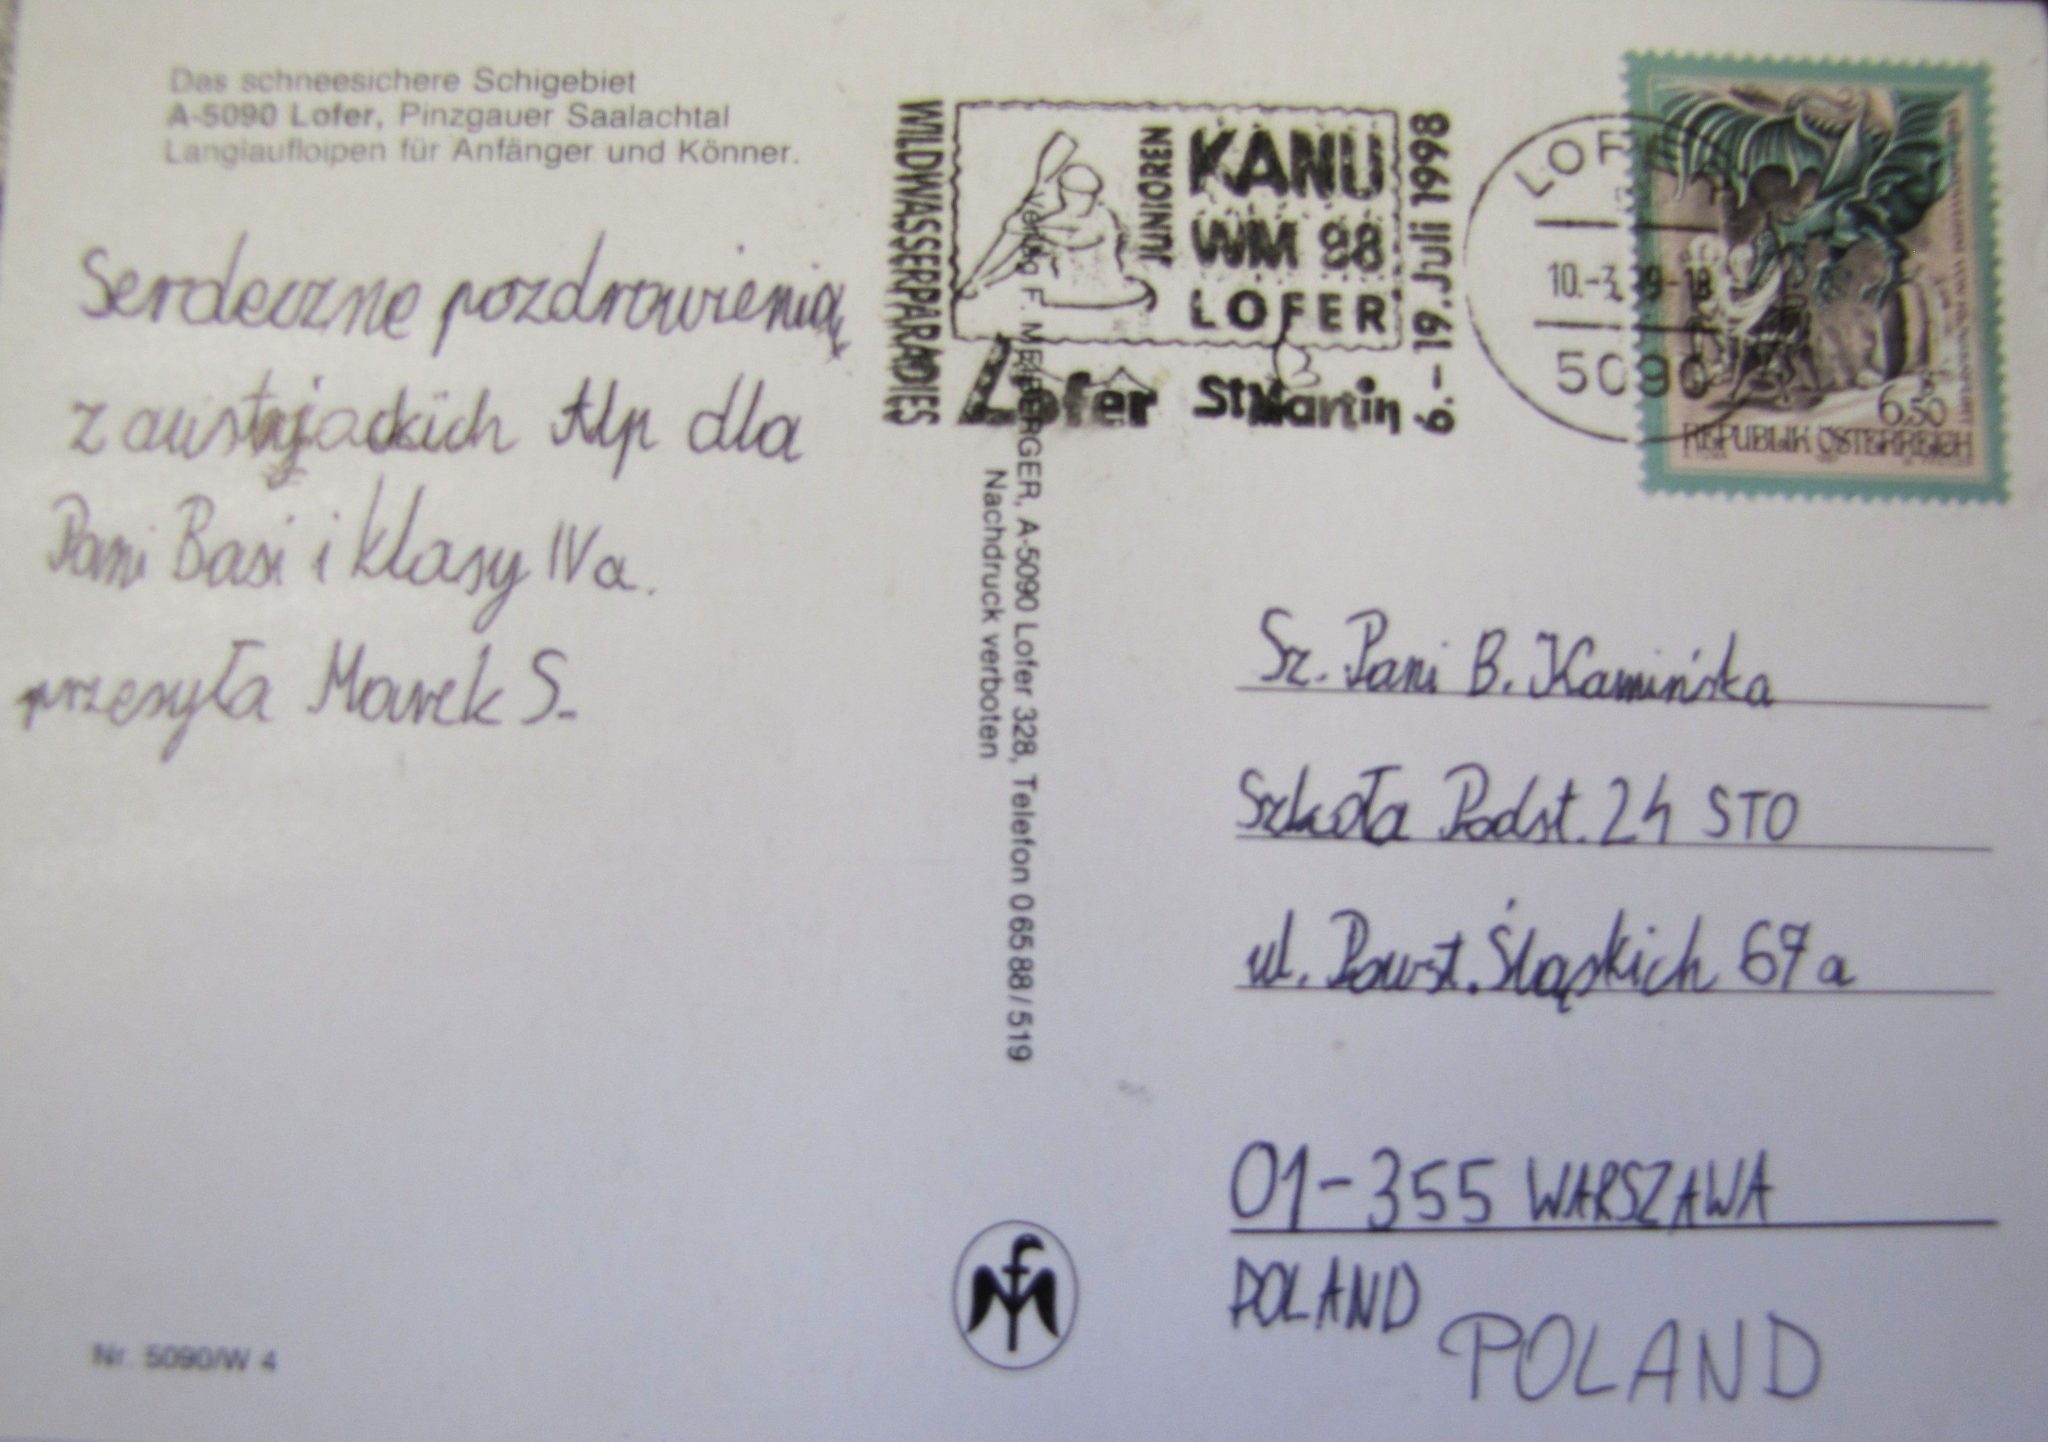 Das schneesichere Schigebiet
A-5090 Lofer, Pinzgauer Saalachtal
Langlaufloipen für Anfänger und Könner.
Serdeczne pozdrowienia
z austryjackich Alp dla
Pani Basi i klasy IVa.
przesyła Marek S.
WILDWASSERPARADIES
JUNIOREN
KANU
WM 98
LOFER
9. - 19. Juli 1998
Lofer St Martin
LOFER
5090
6.50
REPUBLIK ÖSTERREICH
Verlag F. MEIBERGER, A-5090 Lofer 328, Telefon 0 65 88 / 519
Nachdruck verboten
Sz. Pani B. Kamińska
Szkoła Podst. 24 STO
ul. Powst. Śląskich 67a
01-355 WARSZAWA
POLAND
POLAND
Nr. 5090/W 4